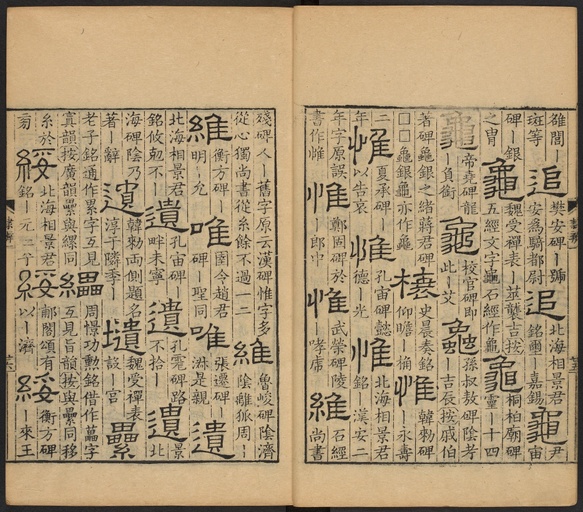 雄間｜追樊安碑｜號追北海相景君尹
斑等安為騎都尉銘璽｜嘉錫龜宙
碑｜銀龜魏受禪表｜莖襲吉按龜桐柏廟碑
之冑五經文字龜石經作龜靈｜十四
龜帝堯碑龍龜校官碑即龜孫叔敖碑陰考
｜負銜此｜艾｜吉辰按戚伯
著碑龜銀之緒蔣君碑槐史晨奏銘惟韓勑碑
□□龜銀龜亦作龜仰瞻｜桷｜永壽
二惟夏承碑｜惟孔宙碑懿惟北海相景君
年以告哀德｜光銘｜漢安二
年字原誤惟鄭固碑於惟武榮碑陵維石經
書作惟｜郎中｜孝序尚書
殘碑人｜舊字原云漢碑惟字多維魯峻碑陰濟
從心獨尚書從糸餘不過一二陰雕狐周｜
維衡方碑｜唯圉令趙君唯張遷碑｜遺
明｜允碑｜聖同淑是親
北海相景君遺孔宙碑｜遺孔霮碑路遺景
銘攸勉不｜畔未寧不拾｜北
海碑陰乃遺韓勑兩側題名壝魏受禪表纍
著｜辭淳于隣季｜設｜宮
老子銘通作累字互見纍周憬功勲銘借作藟字
真韻按廣韻纍與縲同緜互見旨韻按與纍同移
糸於綏北海相景君綏郙閣頌有綏衡方碑
芻銘｜元二子以｜濟｜來王